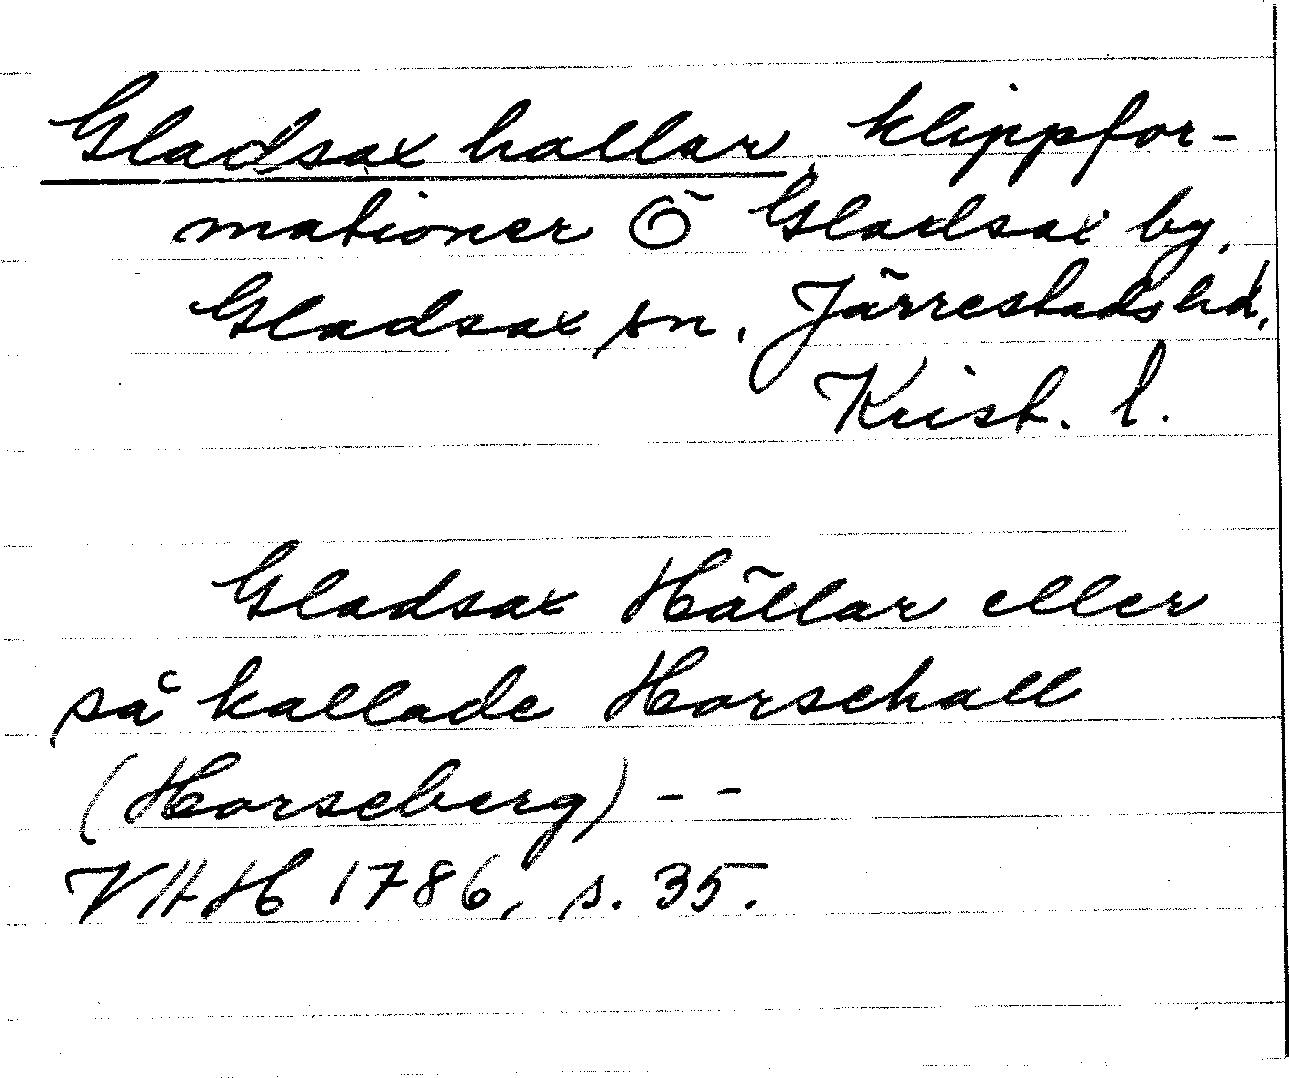 Gladsax hallar, klippfor-
mationer Ö Gladsax by,
Gladsax sn, Järrestads hd,
Krist. l.
Gladsax Hällar eller
så kallade Horsehall
(Horseberg) - -
VHH 1786, s. 35.